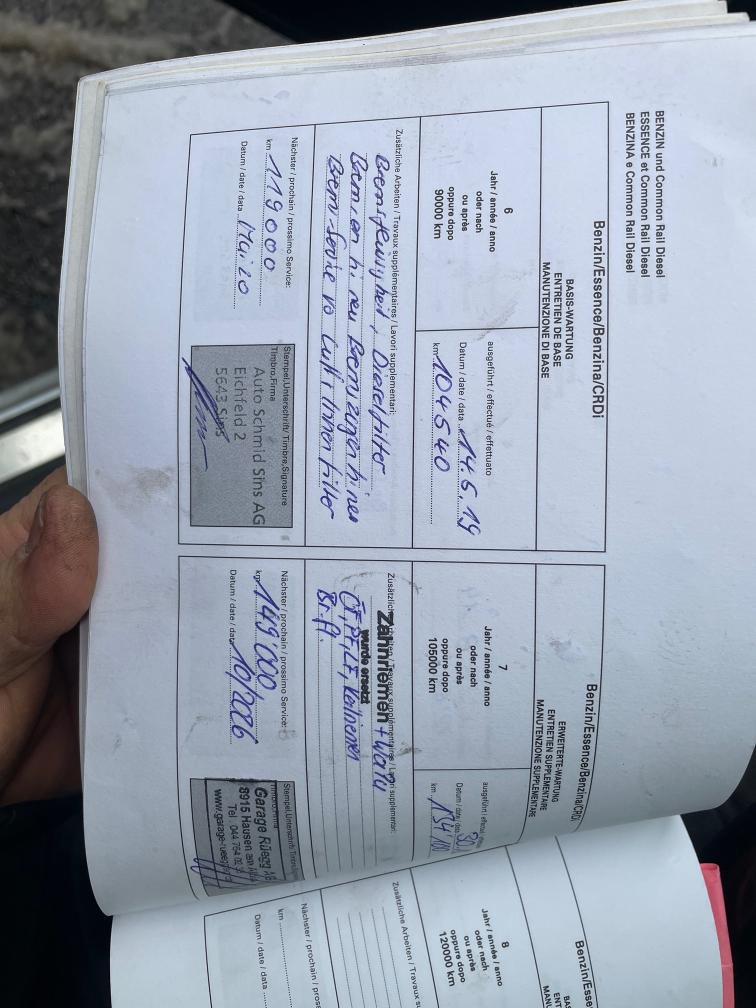 BENZIN und Common Rail Diesel
ESSENCE et Common Rail Diesel
BENZINA e Common Rail Diesel
Benzin/Essence/Benzina/CRDi
BASIS-WARTUNG
ENTRETIEN DE BASE
MANUTENZIONE DI BASE
6
Jahr / année / anno
oder nach
ou après
oppure dopo
90000 km
ausgeführt / effectué / effettuato
Datum / date / data 14.5.19
km 104540
Zusätzliche Arbeiten / Travaux supplémentaires / Lavori supplementari:
Bremsflüssigkeit, Dieselfilter
Bremsen hi neu Bremszangen hi neu
Brems Servie vo Luft, Innenfilter
Nächster / prochain / prossimo Service:
km 119000
Datum / date / data Mai 20
Stempel,Unterschrift/ Timbre,Signature
Timbro,Firma
Auto Schmid Sins AG
Eichfeld 2
5643 Sins
Benzin/Essence/Benzina/CRDi
ERWEITERTE-WARTUNG
ENTRETIEN SUPPLEMENTAIRE
MANUTENZIONE SUPPLEMENTARE
7
Jahr / année / anno
oder nach
ou après
oppure dopo
105000 km
ausgeführt /
Datum / date / data 30
km 134'100
Zusätzliche Arbeiten / Travaux supplémentaires / Lavori supplementari:
Zahnriemen + WaPu
wurde ersetzt
ÖF, PF, LF, Keilriemen
Br. fl.
Nächster / prochain / prossimo Service:
km 149'000
Datum / date / data 10/2026
Stempel,Unterschrift/
Garage Rüegg AG
8915 Hausen am Albis
Tel. 044 764
Benzin/Ess
8
Jahr / année / anno
oder nach
ou après
oppure dopo
120000 km
Zusätzliche Arbeiten / Travaux su
Nächster / prochain / pross
km
Datum / date / data